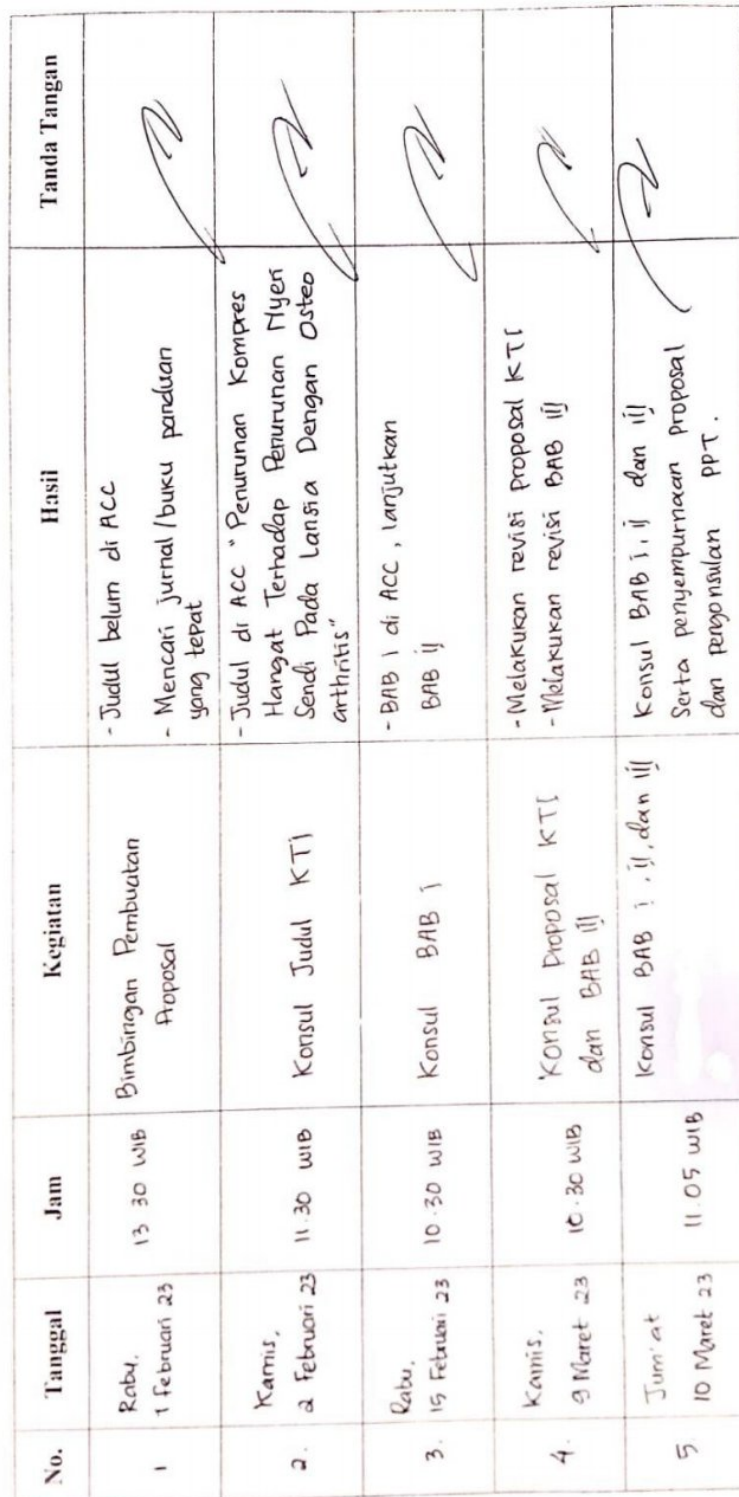 No. Tanggal Jam Kegiatan Hasil Tanda Tangan
1
Rabu,
1 Februari 23
13 30 WIB
Bimbingan Pembuatan
Proposal
- Judul belum di ACC
- Mencari jurnal/buku panduan
yang tepat
2.
Kamis,
2 Februari 23
11.30 WIB
Konsul Judul KTI
- Judul di ACC "Penurunan Kompres
Hangat Terhadap Penurunan Nyeri
Sendi Pada Lansia Dengan Osteo
arthritis"
3.
Rabu,
15 Februari 23
10.30 WIB
Konsul BAB i
- BAB i di ACC, lanjutkan
BAB ii
4.
Kamis,
9 Maret 23
10.30 WIB
Konsul Proposal KTI
dan BAB iii
- Melakukan revisi proposal KTI
- Melakukan revisi BAB iii
5
Jum'at
10 Maret 23
11.05 WIB
Konsul BAB i, ii, dan iii
Konsul BAB i, ii dan iii
Serta penyempurnaan proposal
dan pengonsulan PPT.